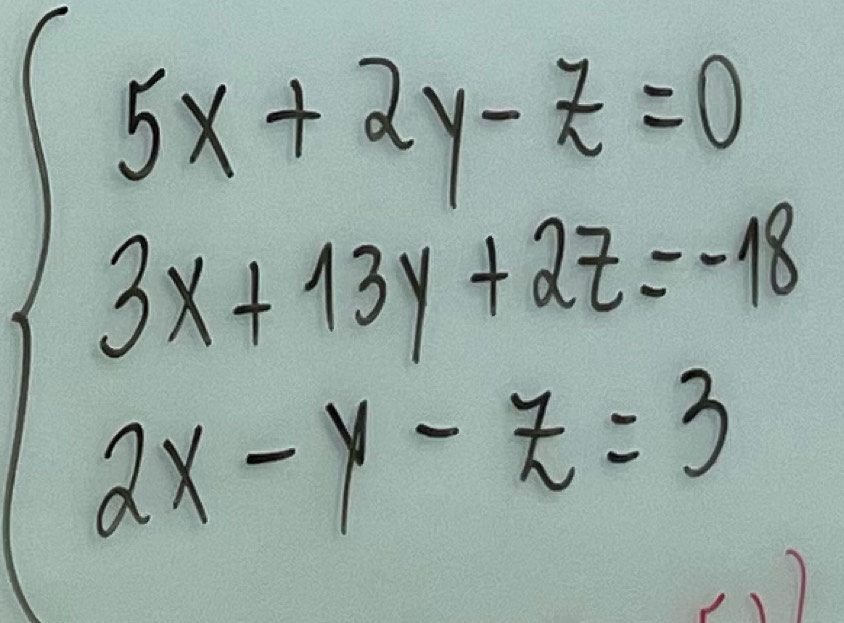 5x + 2y - z = 0
3x + 13y + 2z = -18
2x - y - z = 3